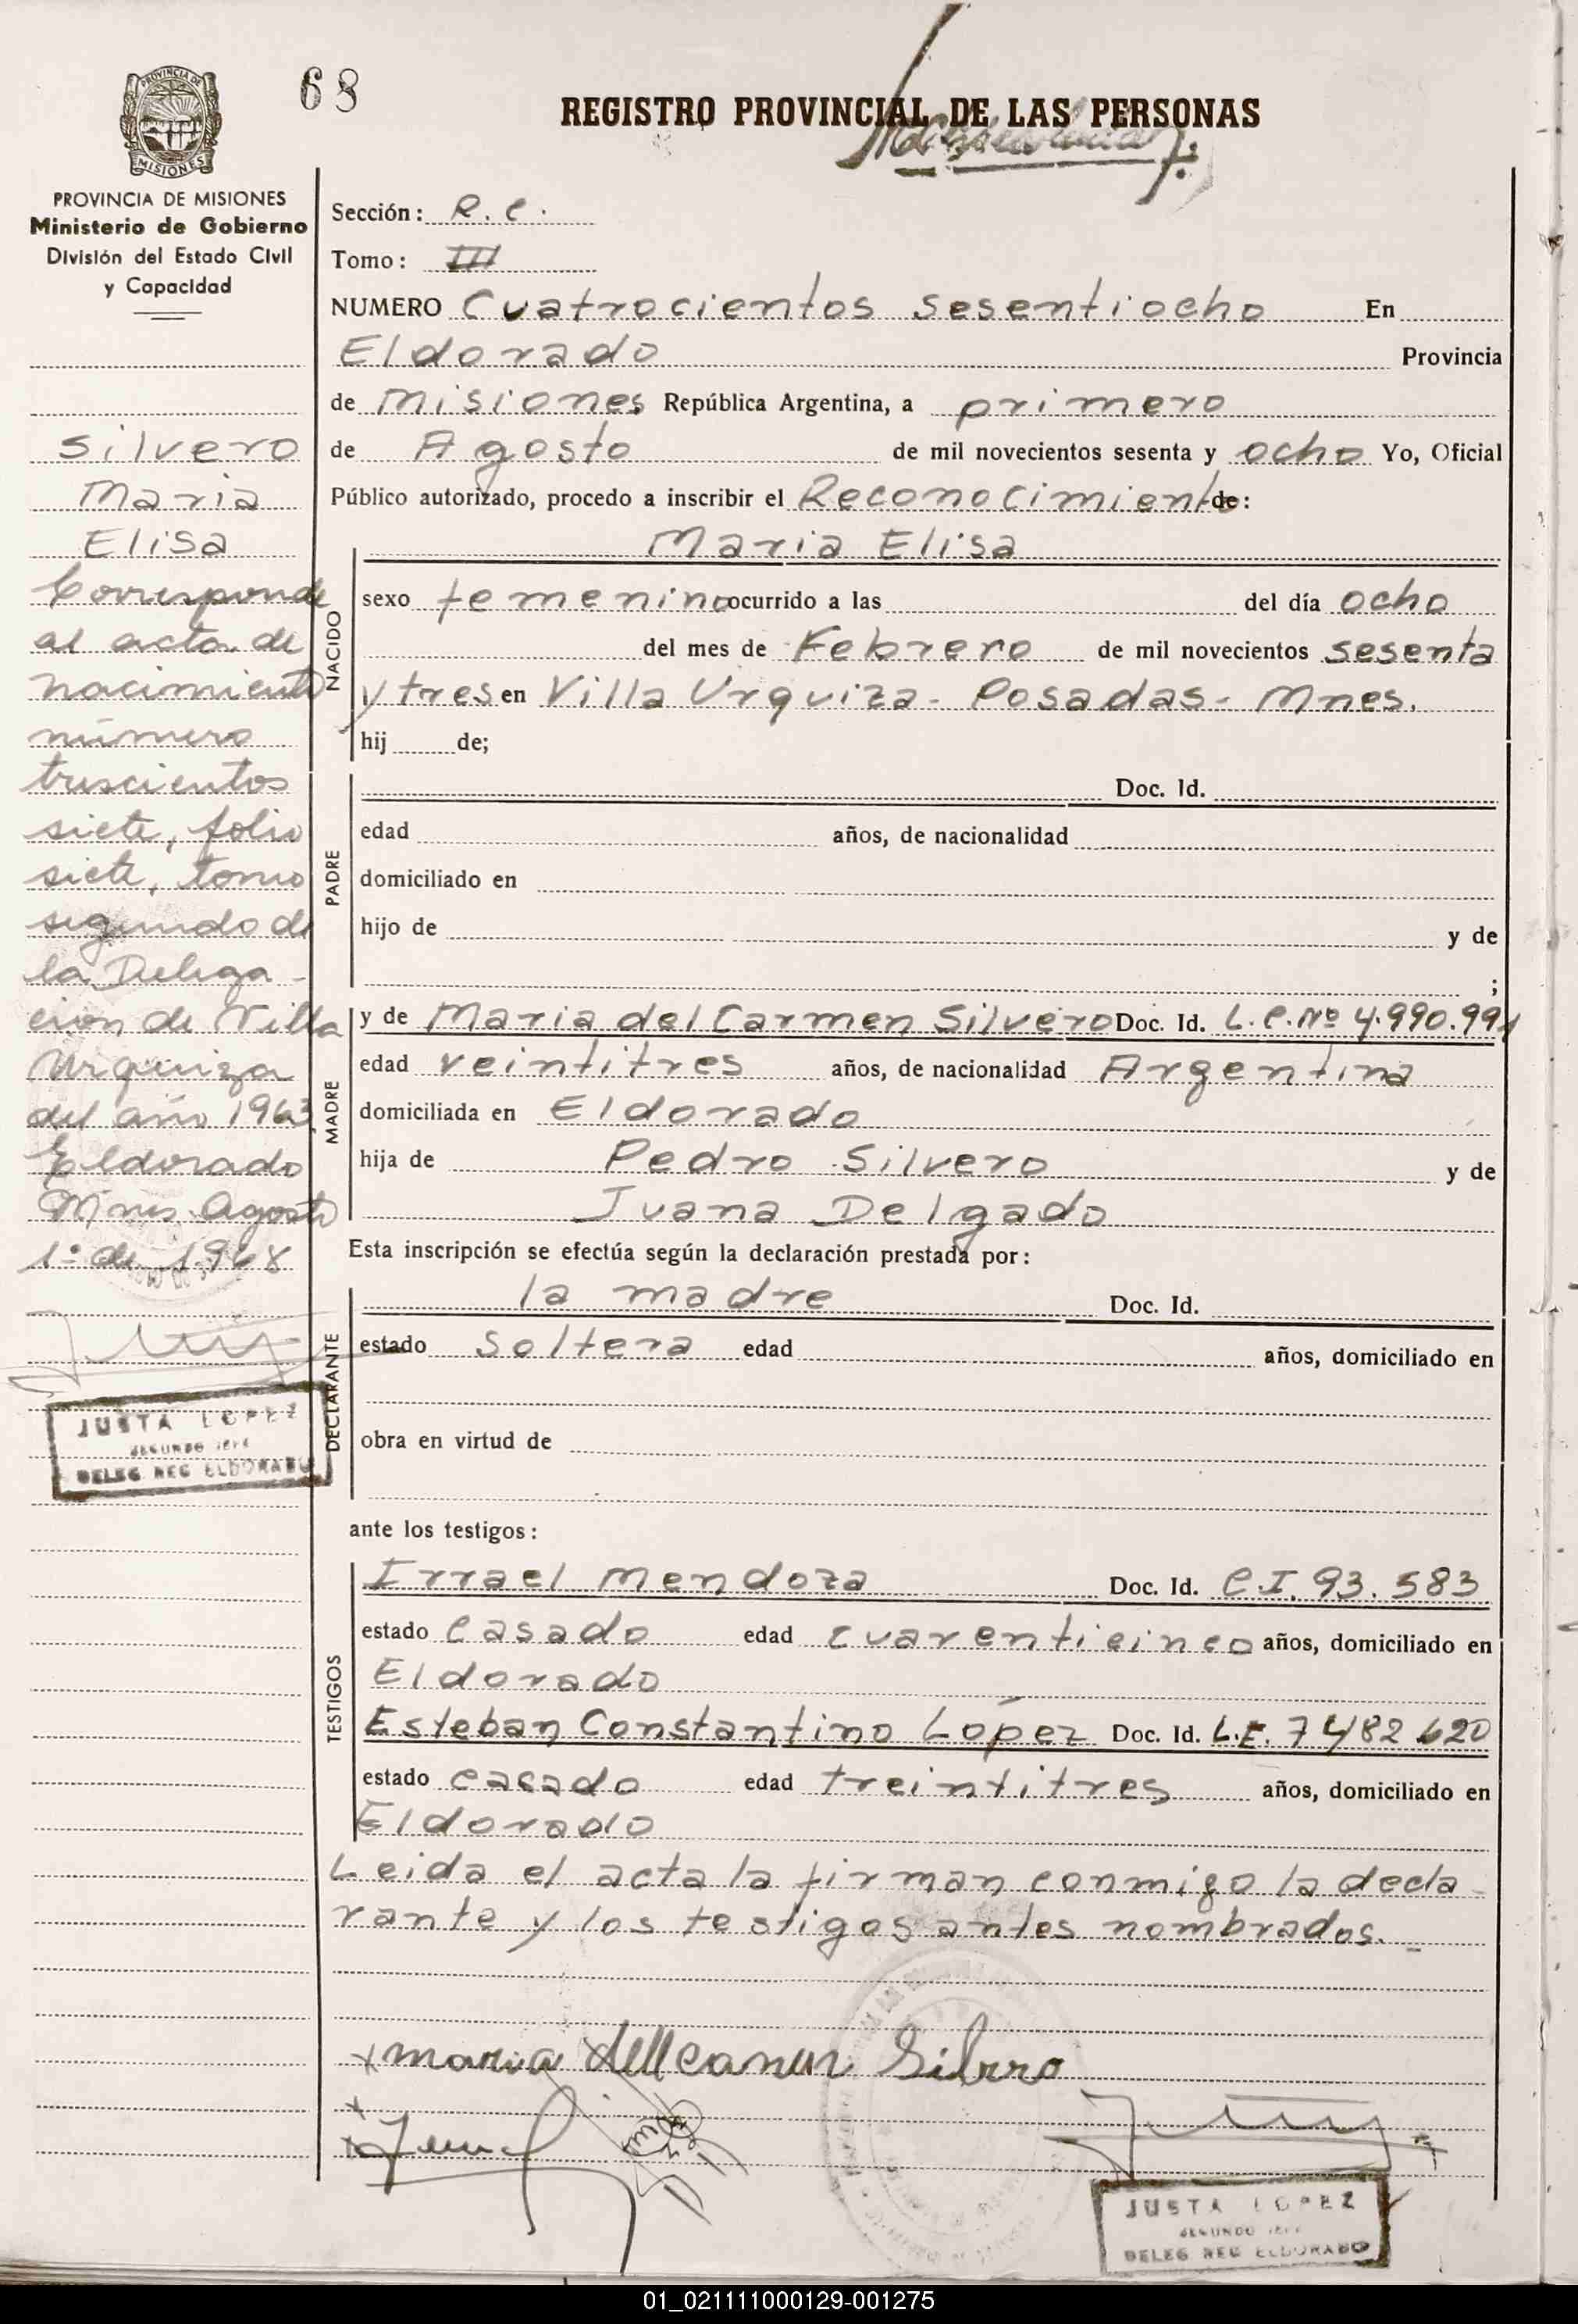 68
REGISTRO PROVINCIAL DE LAS PERSONAS
PROVINCIA DE
MISIONES
PROVINCIA DE MISIONES
Ministerio de Gobierno
División del Estado Civil
y Capacidad
Silvero
Maria
Elisa
Corresponde
al acta de
nacimiento
número
trescientos
siete, folio
siete, tomo
segundo de
la Delega-
ción de Villa
Urquiza
del año 1963
Eldorado
Mnes. Agosto
1º de 1968
JUSTA LOPEZ
SEGUNDO JEFE
DELEG REG ELDORADO
Sección: R. C.
Tomo: III
NUMERO Cuatrocientos sesentiocho En
Eldorado Provincia
de Misiones República Argentina, a primero
de Agosto de mil novecientos sesenta y ocho Yo, Oficial
Público autorizado, procedo a inscribir el Reconocimiento de:
NACIDO
Maria Elisa
sexo femenino ocurrido a las del día ocho
del mes de Febrero de mil novecientos sesenta
y tres en Villa Urquiza - Posadas - Mnes.
hij de;
PADRE
Doc. Id.
edad años, de nacionalidad
domiciliado en
hijo de y de
;
MADRE
y de Maria del Carmen Silvero Doc. Id. L.C. Nº 4.990.991
edad veintitres años, de nacionalidad Argentina
domiciliada en Eldorado
hija de Pedro Silvero y de
Juana Delgado
Esta inscripción se efectúa según la declaración prestada por:
DECLARANTE
la madre Doc. Id.
estado soltera edad años, domiciliado en
obra en virtud de
ante los testigos:
TESTIGOS
Irrael Mendoza Doc. Id. C.I. 93.583
estado casado edad cuarenticinco años, domiciliado en
Eldorado
Esteban Constantino López Doc. Id. L.E. 7482620
estado casado edad treintitres años, domiciliado en
Eldorado
Leida el acta la firman conmigo la decla-
rante y los testigos antes nombrados.-
x maria dell
JUSTA LOPEZ
SEGUNDO JEFE
DELEG REG ELDORADO
01_021111000129-001275